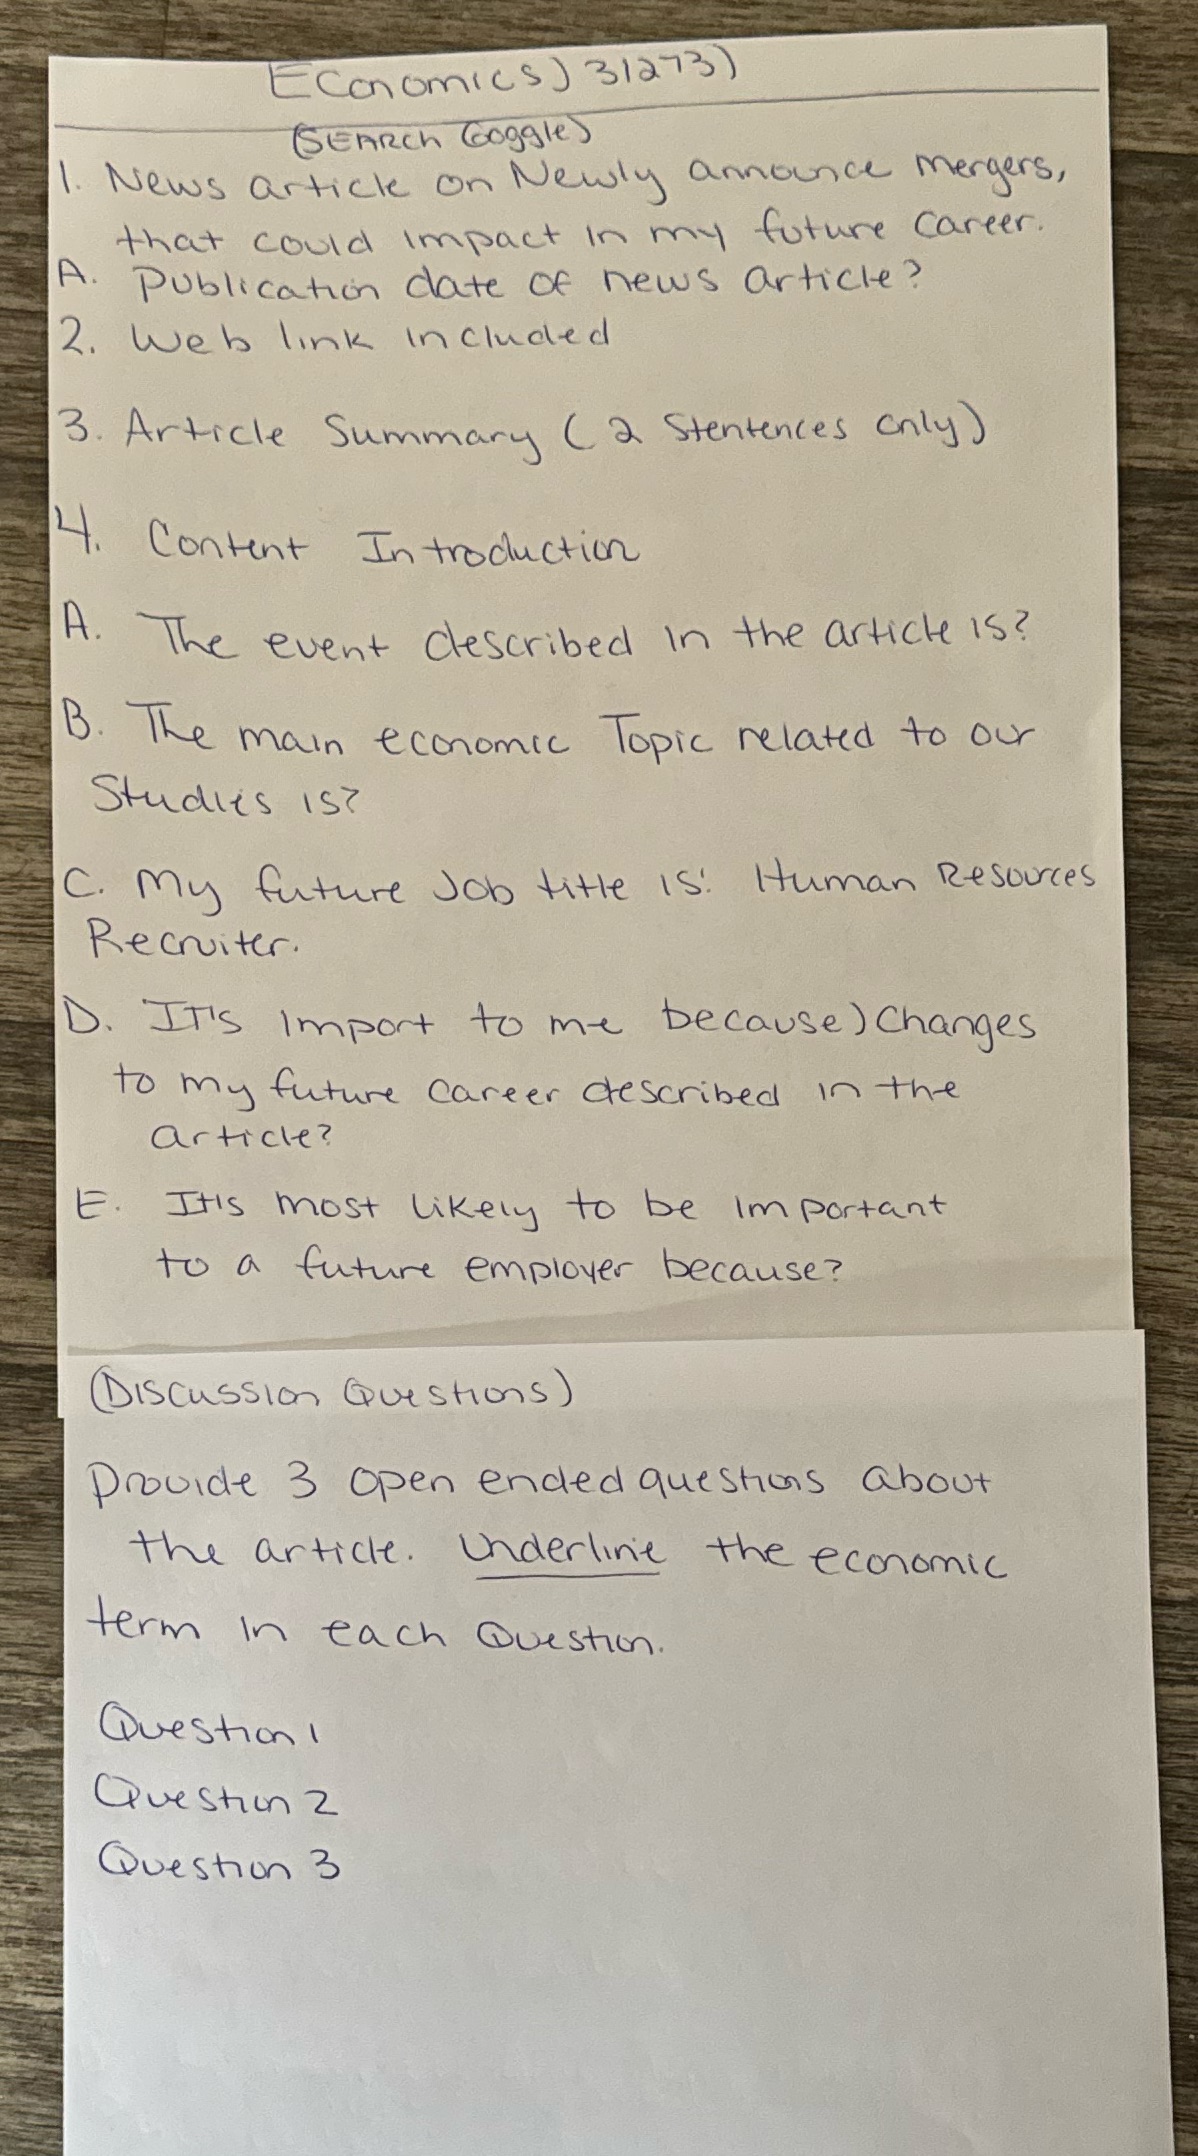 Economics) 31273)
(SEARCH Goggle)
1. News article on Newly announce mergers,
that could impact in my future career.
A. Publication date of news article?
2. Web link included
3. Article Summary (2 Stentences only)
4. Content Introduction
A. The event described in the article is?
B. The main economic Topic related to our
Studies is?
C. My future Job title is: Human Resources
Recruiter.
D. IT's import to me because) Changes
to my future career described in the
article?
E. It's most likely to be important
to a future employer because?
(Discussion Questions)
Provide 3 open ended questions about
the article. Underline the economic
term in each Question.
Question 1
Question 2
Question 3